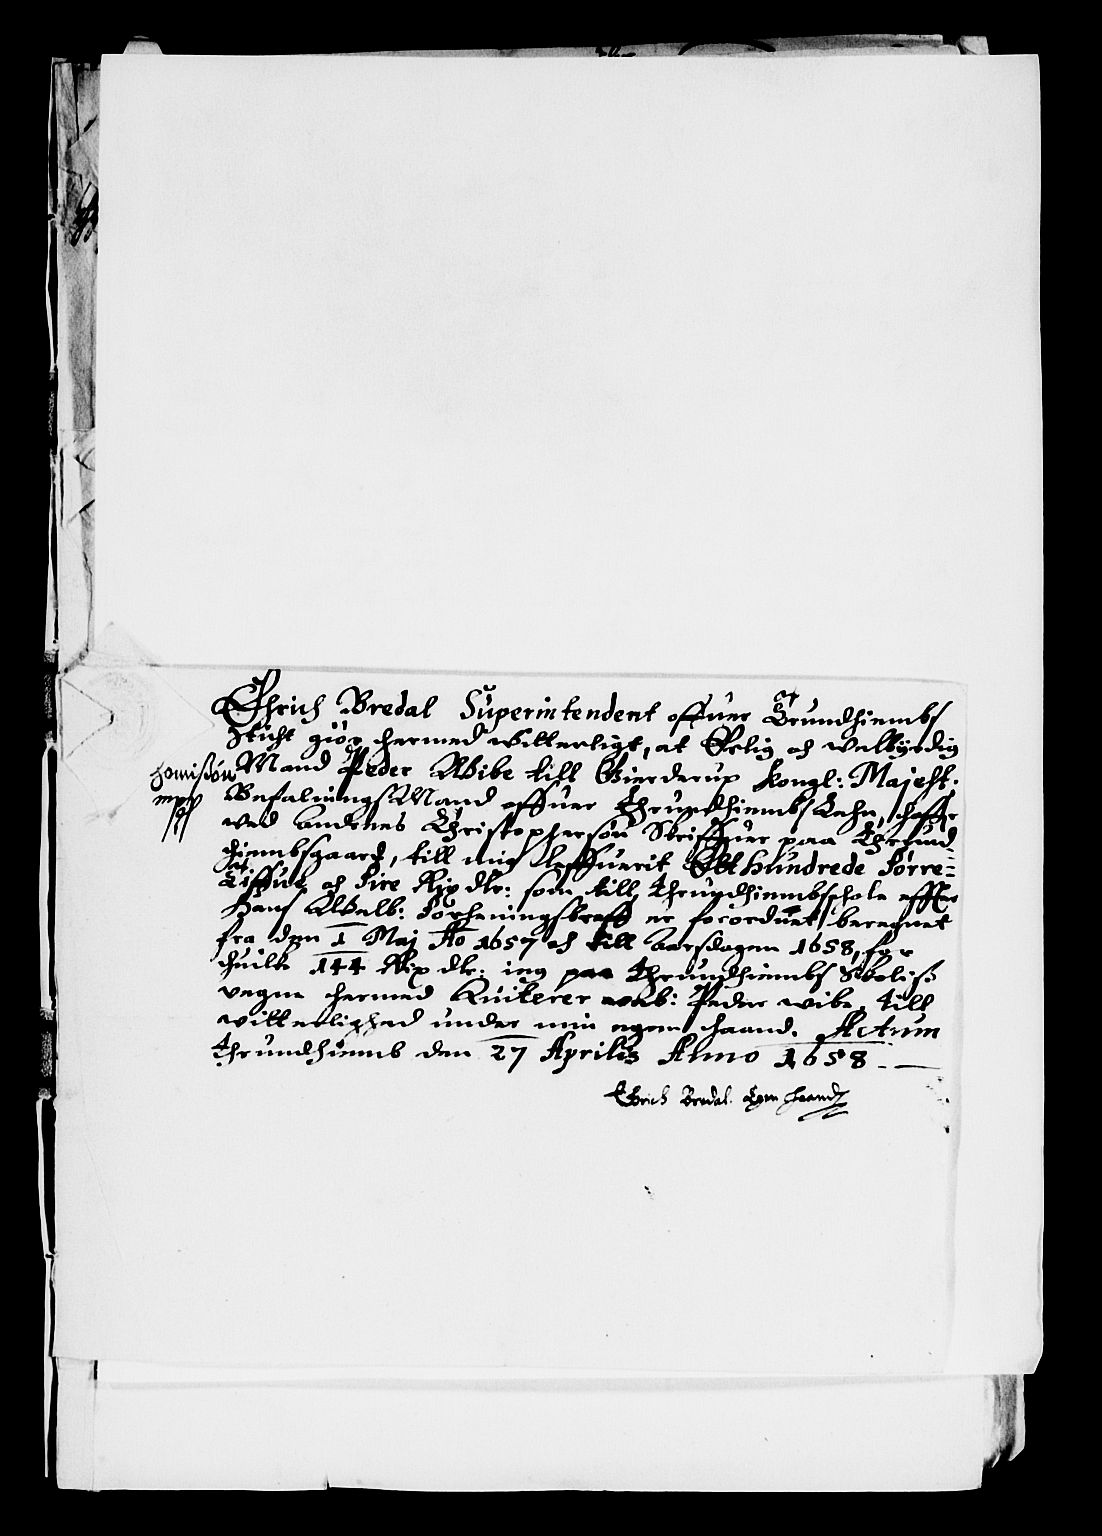 Ehrich Bredal Superintendent offuer Trundhiembs
Sticht giør hermed Witterligt, at Erlig och Welbyrdig
Mand Peder Wibe till Gierderup Kongl: Majest:
Befalnings Mand offuer Thrundhiembs Lehn, haffr
ved Anders Christophersøn Skriffuer paa Thrund
hiembsgaard, till mig leffuerit Et hundrede Førre-
tiffue och Fire Rix dlr: som till Thrundhiembs schole effter
Hans Welb: Forleningsbreff er forordnet beregnet
fra den 1 Maj Ao 1657 och till Aarsdagen 1658, for
huilke 144 Rix dlr: ieg paa Thrundhiembs Skolis
vegne hermed Quiterer welb: Peder wibe, till
witterlighed under min egen haand. Actum
Thrundhiemb den 27 Aprilis Anno 1658.
Erich Bredal Egen haand